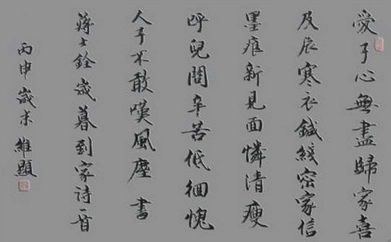 愛子心無盡歸家喜
及辰寒衣鍼綫密家信
墨痕新見面憐清瘦
呼兒問辛苦低徊愧
人子不敢嘆風塵 書
蔣士銓歲暮到家詩一首
丙申歲末 維顯